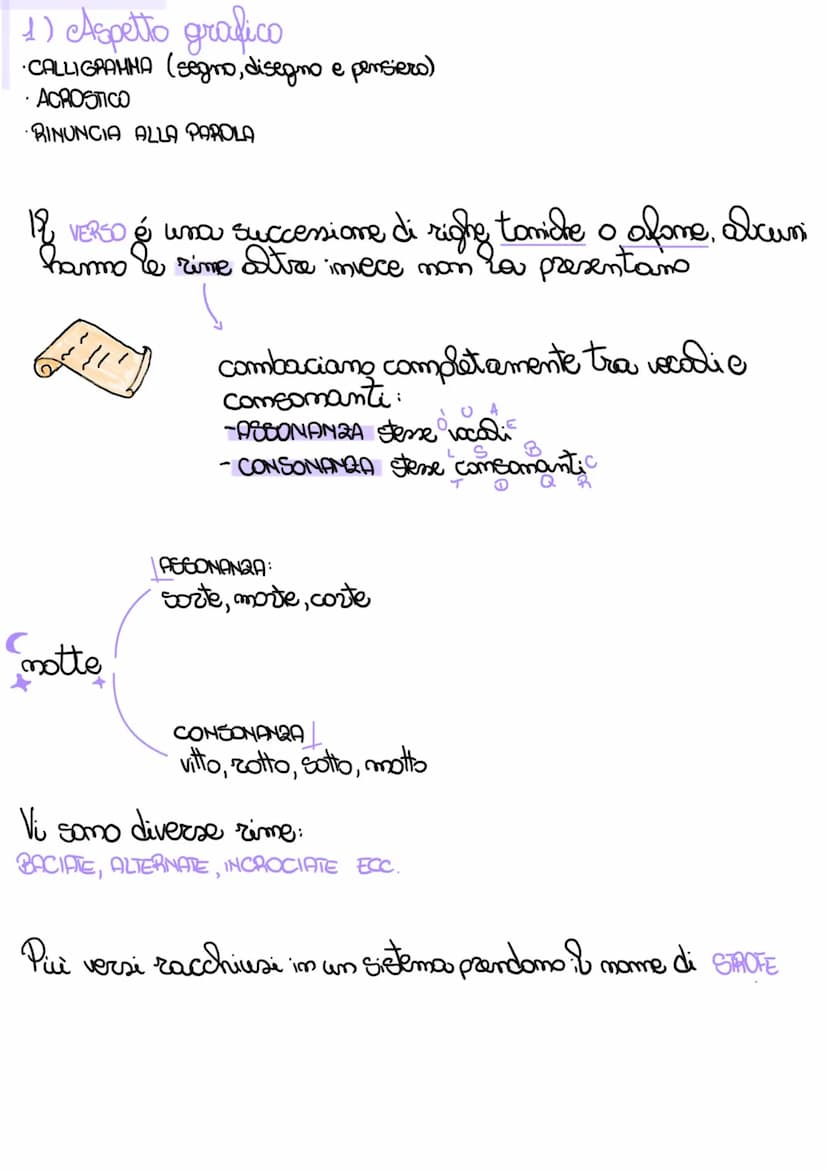 1) Aspetto grafico
·CALLIGRAMMA (segno, disegno e pensiero)
· ACROSTICO
·RINUNCIA ALLA PAROLA
Il VERSO é una successione di righe toniche o afone, alcuni
hanno le rime altre invece non la presentano
combaciano completamente tra vocali e
consonanti:
O U A E
-ASSONANZA stesse vocali
L S B C
- CONSONANZA stesse consonanti
T D Q R
ASSONANZA:
sorte, morte, corte
notte
CONSONANZA
vitto, rotto, sotto, motto
Vi sono diverse rime:
BACIATE, ALTERNATE, INCROCIATE ECC.
Più versi racchiusi in un sistema prendono il nome di STROFE